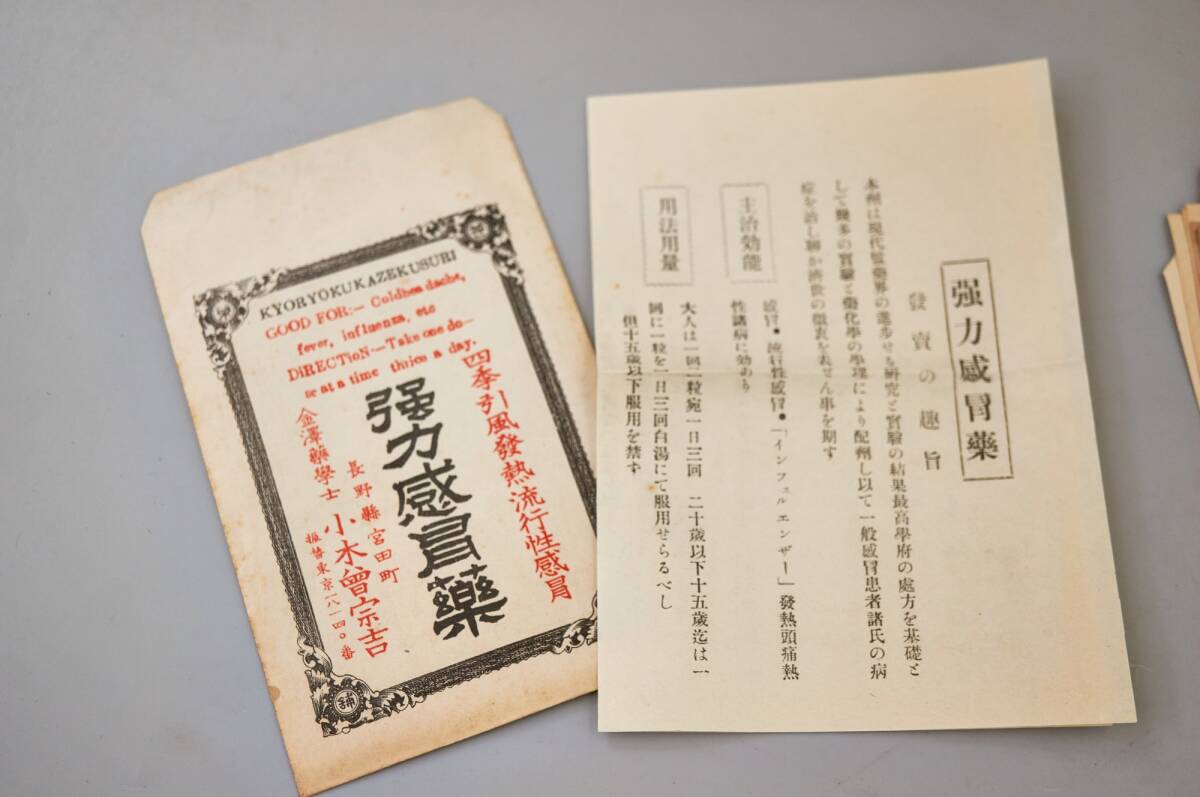 KYORYOKUKAZEKUSURI
GOOD FOR:- Coldhea dache,
fever, influenza, etc
DiRECTioN:-Take one do-
se at a time thrice a day.
四季引風發熱流行性感冐
强力感冐藥
長野縣宮田町
金澤藥學士 小木曾宗吉
振替東京一八一四〇番
强力感冒藥
發賣の趣旨
本劑は現代醫藥界の進步せる硏究と實驗の結果最高學府の處方を基礎と
して幾多の實驗と藥化學の學理により配劑し以て一般感冒患者諸氏の病
症を治し聊か濟世の微衷を表せん事を期す
主治効能
感冒●流行性感冒●「インフェルエンザー」發熱頭痛熱
性諸病に効あり
用法用量
大人は一回二粒宛一日三回 二十歲以下十五歲迄は一
回に一粒を一日三回白湯にて服用せらるべし
但十五歲以下服用を禁ず